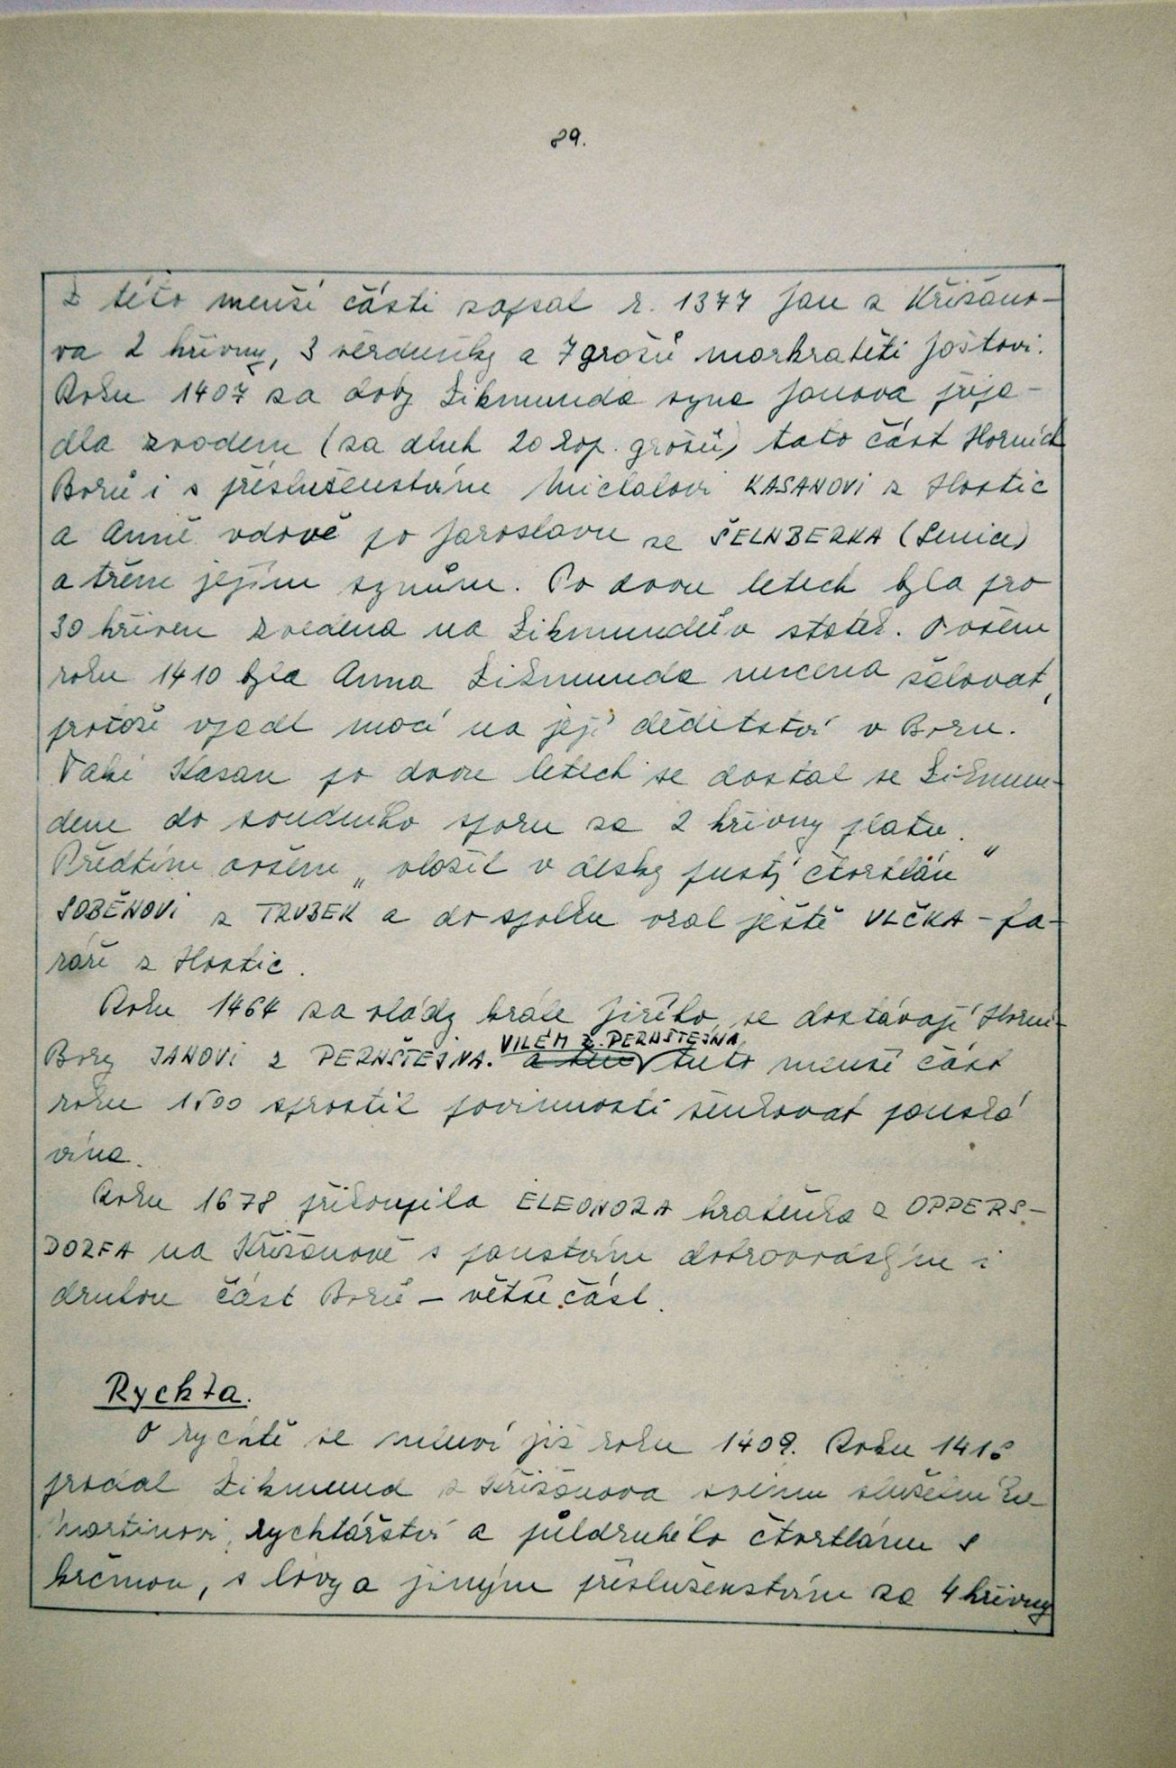 89.
Z této menší části zapsal r. 1377 Jan z Křižano-
va 2 hřivny, 3 věrdunky a 7 grošů markraběti Joštovi.
Roku 1407 za doby Zikmunda syna Janova připa-
dla zvodem (za dluh 20 kop. grošů) tato část Horních
Borů i s příslušenstvím Michalovi KASANOVI z Hostic
a Anně vdově po Jaroslavu ze ŠELNBERKA (Lenice)
a třem jejím synům. Po dvou letech byla pro
30 hřiven zvedena na Zikmundův statek. Ovšem
roku 1410 byla Anna Zikmunda nucena žalovat,
protože vpadl mocí na její dědictví v Boru.
Také Kasan po dvou letech se dostal se Zikmun-
dem do soudního sporu za 2 hřivny platu.
Předtím ovšem „vložil v desky pustý čtvrtlán"
SOBĚNOVI z TRUBEK a do spolku vzal ještě VLČKA - fa-
ráře z Hostic.
Roku 1464 za vlády krále Jiřího se dostávají Horní
Bory JANOVI z PERNŠTEJNA. a ten VILÉM Z PERNŠTEJNA tuto menší část
roku 1500 sprostil povinnosti šenkovat panská
vína.
Roku 1678 přikoupila ELEONORA hraběnka z OPPERS-
DORFA na Křižanově s panstvím dobrovodským i
druhou část Borů - větší část.
Rychta.
O rychtě se mluví již roku 1409. Roku 1416
prodal Zikmund z Křižanova svému služebníku
Martinovi, rychtářství a půldruhého čtvrtlánu s
krčmou, s lovy a jiným příslušenstvím za 4 hřivny